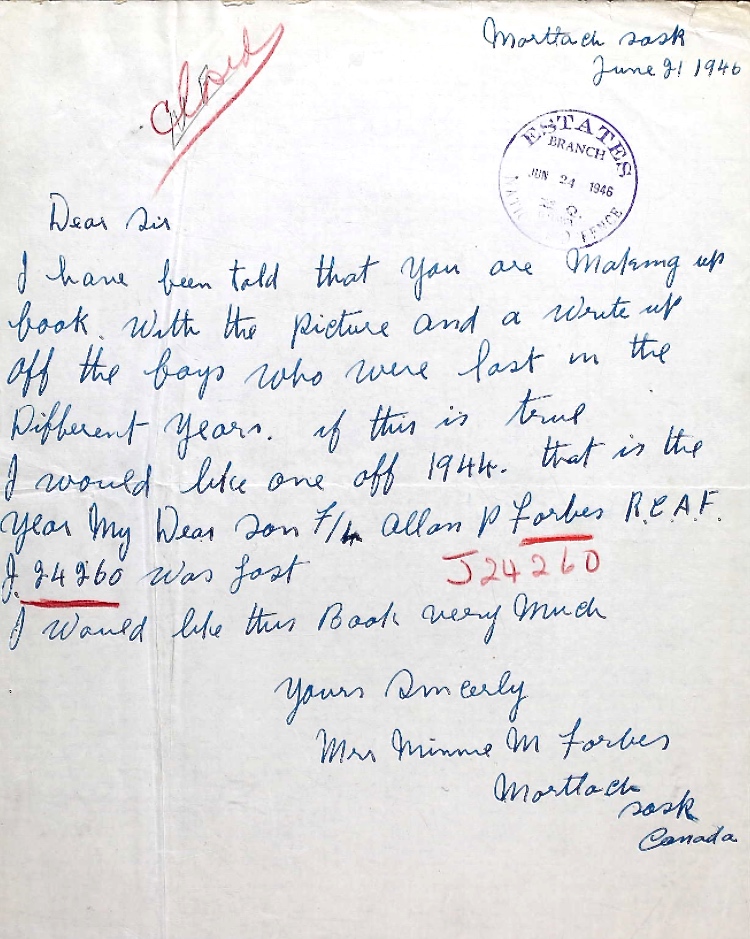 Morttach sask
June 21 1946
Closed
ESTATES
BRANCH
JUN 24 1946
Dear Sir
I have been told that you are Making up
book. With the picture and a Write up
off the boys who were lost in the
Different Years. if this is true
I would like one off 1944. that is the
year My Dear son F/L Allan P Forbes R.C.A.F.
J. 24260 Was Lost
J24260
I Would like this Book very Much
Yours Sincerly
Mrs Minnie M Forbes
Morttach
sask
Canada